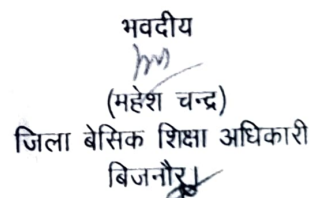 भवदीय
(महेश चन्द्र)
जिला बेसिक शिक्षा अधिकारी
बिजनौर।